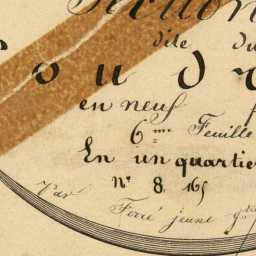 dite du
oudr
en neuf
6.me Feuille
En un quartie
N° 8. 16
Par
Ferré jeune